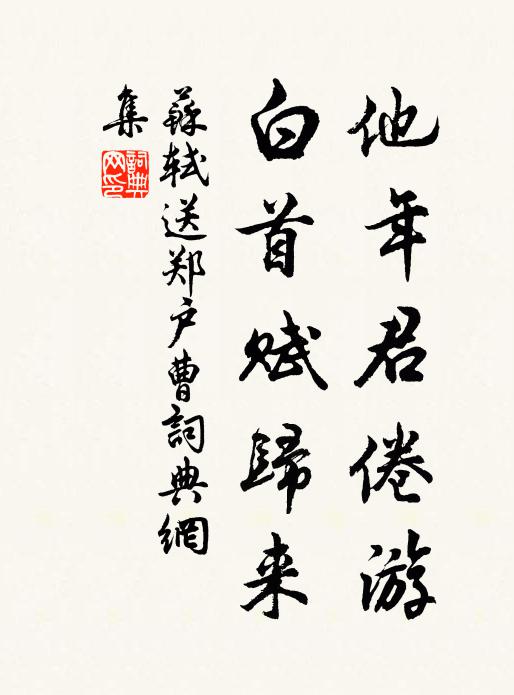 他年君倦游
白首赋歸来
蘇轼送郑户曹詞典網
集
詞典
网印